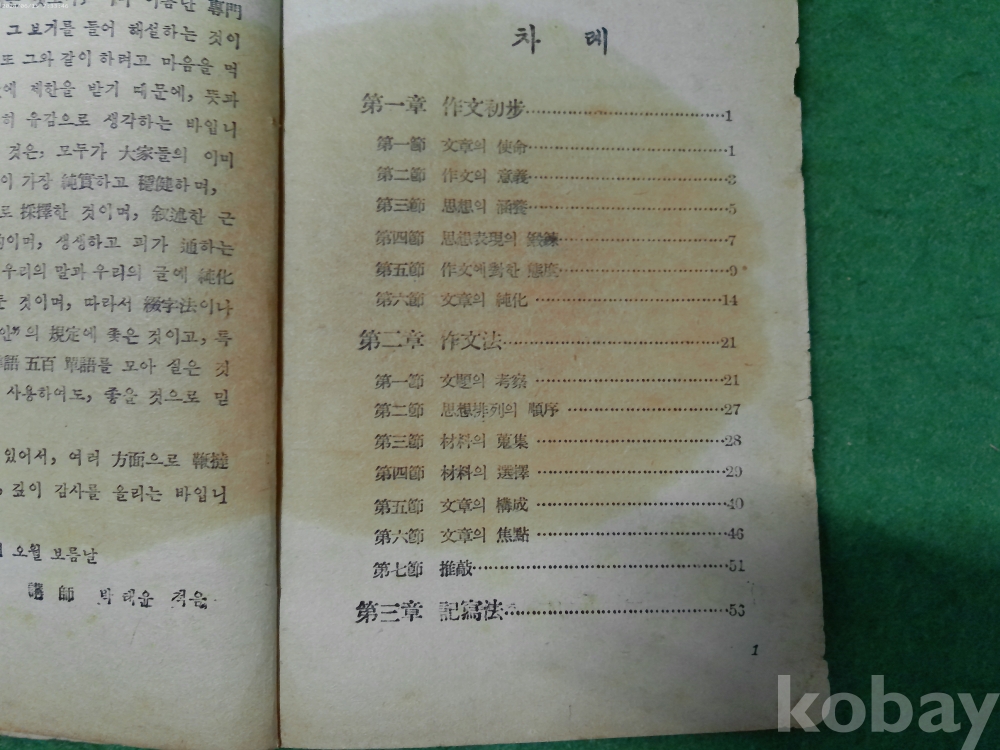 專門
그 보기를 들어 해설하는 것이
또 그와 같이 하려고 마음을 먹
에 제한을 받기 때문에, 뜻과
히 유감으로 생각하는 바입니
것은, 모두가 大家들의 이미
이 가장 純實하고 穩健하며,
로 採擇한 것이며, 敍述한 근
이며, 생생하고 피가 通하는
우리의 말과 우리의 글에 純化
것이며, 따라서 綴字法이나
안”의 規定에 좇은 것이고, 특
語 五百 單語를 모아 실은 것
사용하여도, 좋을 것으로 믿
있어서, 여러 方面으로 鞭撻
, 깊이 감사를 올리는 바입니
오월 보름날
講師 박태윤 적음
차 례
第一章 作文初步 1
第一節 文章의 使命 1
第二節 作文의 意義 3
第三節 思想의 涵養 5
第四節 思想表現의 鍛鍊 7
第五節 作文에 對한 態度 9
第六節 文章의 純化 14
第二章 作文法 21
第一節 文題의 考察 21
第二節 思想排列의 順序 27
第三節 材料의 蒐集 28
第四節 材料의 選擇 29
第五節 文章의 構成 40
第六節 文章의 焦點 46
第七節 推敲 51
第三章 記寫法 53
1
kobay